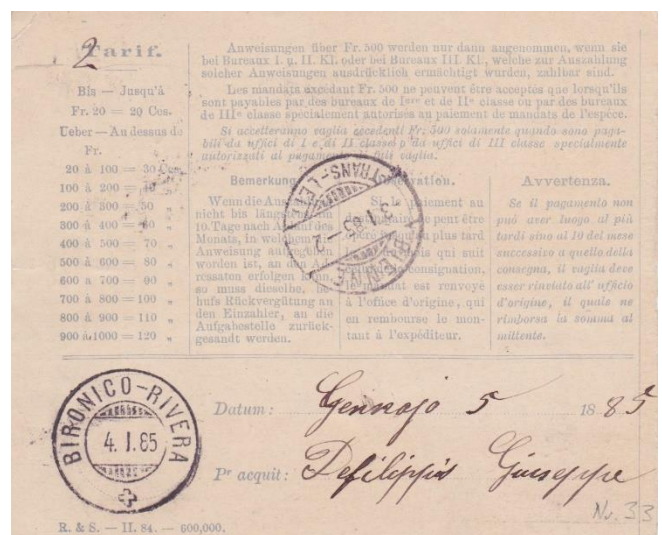 2
Tarif.
Bis — Jusqu'à
Fr. 20 = 20 Ces.
Ueber — Au dessus de
Fr.
20 à 100 = 30 Ces.
100 à 200 = 40 "
200 à 300 = 50 "
300 à 400 = 60 "
400 à 500 = 70 "
500 à 600 = 80 "
600 à 700 = 90 "
700 à 800 = 100 "
800 à 900 = 110 "
900 à 1000 = 120 "
Anweisungen über Fr. 500 werden nur dann angenommen, wenn sie
bei Bureaux I. u. II. Kl. oder bei Bureaux III. Kl., welche zur Auszahlung
solcher Anweisungen ausdrücklich ermächtigt wurden, zahlbar sind.
Les mandats excédant Fr. 500 ne peuvent être acceptés que lorsqu'ils
sont payables par des bureaux de Iere et de IIe classe ou par des bureaux
de IIIe classe specialement autorisés au paiement de mandats de l'espèce.
Si accetteranno vaglia eccedenti Fr. 500 solamente quando sono paga-
bili da uffici di I e di II classe o da uffici di III classe specialmente
autorizzati al pagamento di tali vaglia.
Bemerkung.
Wenn die
nicht bis längstens am
10. Tage nach Ablauf des
Monats, in welchem die
Anweisung aufgegeben
worden ist, an den Ad-
ressaten erfolgen kann,
so muss dieselbe, be-
hufs Rückvergütung an
den Einzahler, an die
Aufgabestelle zurück-
gesandt werden.
Si le paiement au
destinataire ne peut être
opéré jusqu'au plus tard
qui suit
consignation,
le mandat est renvoyé
à l'office d'origine, qui
en rembourse le mon-
tant à l'expéditeur.
Avvertenza.
Se il pagamento non
può aver luogo al più
tardi sino al 10 del mese
successivo a quello della
consegna, il vaglia deve
esser rinviato all' ufficio
d'origine, il quale ne
rimborsa la somma al
mittente.
BIRONICO-RIVERA
4. I. 85
Datum: Gennajo 5 1885
Pr acquit: Defilippis Giuseppe
Nr. 33
R. & S. — II. 84. — 600,000.